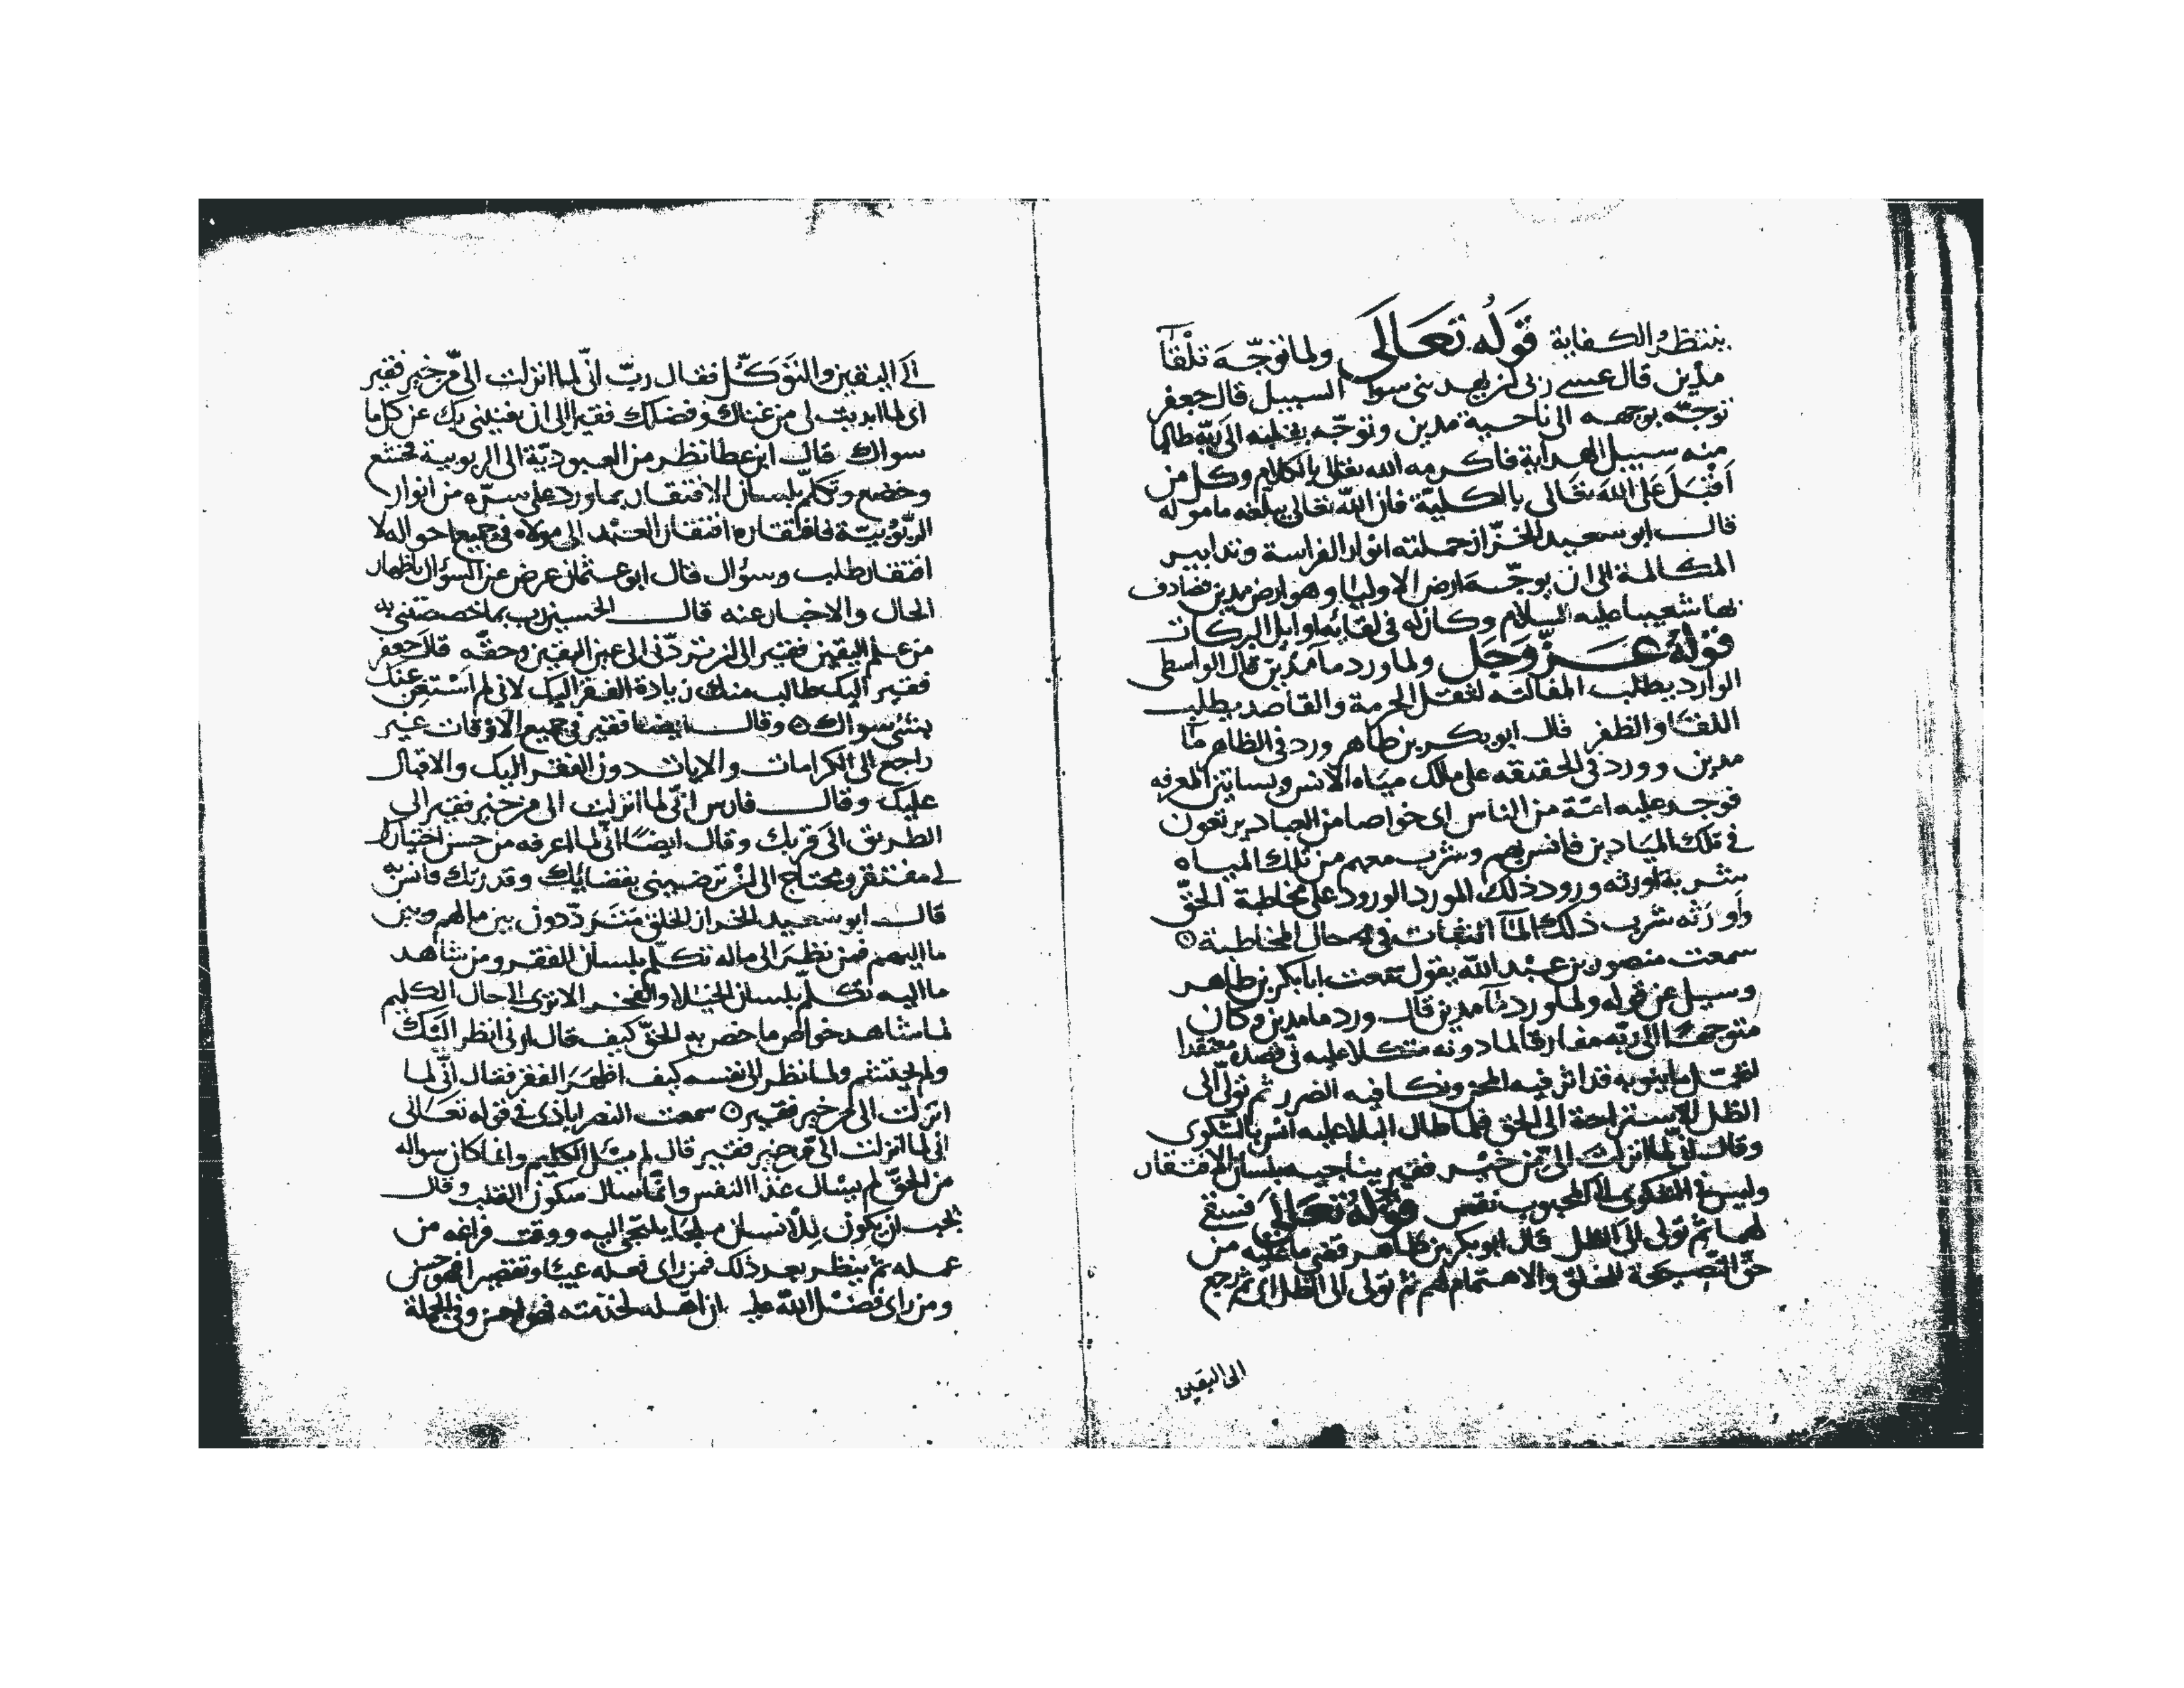 ينتظر الكفاية قوله تعالى ولما توجه تلقآ
مدين قال عسى ربى ان يهدينى سوا السبيل قال جعفر
توجه بوجهه الى ناحية مدين وتوجه بقلبه الى ربه طالبا
منه سبيل الهداية فاكرمه الله تعالى بالكلام وكل من
اقبل على الله تعالى بالكلية فان الله تعالى يبلغه ماموله
قال ابو سعيد الخراز حملته انوار الفراسة وتدابير
المكالمة الى ان يوجه ارض الاوليا وهو ارض مدين فصادف
بها شعيبا عليه السلام وكان له فى لقائه اوايل البركات
قوله عز وجل ولما ورد مآ مدين قال الواسطى
الوارد يطلب المقالته لثقل الحرمة والقاصد يطلب
اللقآ والظفر قال ابو بكر بن طاهر ورد فى الظاهر مآ
مدين وورد فى الحقيقه على ملك مياه الانس وبساتين المعرفه
فوجد عليه امة من الناس اى خواصا من العباد يرتعون
فى تلك الميادين فانس بهم وشرب معهم من تلك المياه
شربة اورثه ورود ذلك المورد الورود على مخاطبة الحق
واورثه شرب ذلك المآ الثبات فى حال المخاطبة
سمعت منصور بن عبد الله يقول سمعت ابا بكر بن طاهر
وسيل عن قوله ولما ورد مآ مدين قال ورد ما مدين وكان
متوجها الى ربه مفارقا لما دونه متكلا عليه فى قصده معتقدا
لثقل ما ينوبه قد اثر فيه المحن ونكا فيه الضرر ثم تولى الى
الظل للاستراحة الى الحق فلما طال البلا عليه انس بالشكوى
وقال انى لما انزلت الى من خير فقير يناجيه بلسان الافتقار
وليس فى الشكوى الى المحبوب نقص قوله تعالى فسقى
لهما ثم تولى الى الظل قال ابو بكر بن طاهر قضى ما عليه من
حق النصيحة للخلق والاهتمام لهم ثم تولى الى الظل اى ثم رجع
الى اليقين
الى اليقين والتوكل فقال رب انى لما انزلت الى من خير فقير
اى لما ابديت لى من غناك وفضلك فقير الى ان تغنينى بك عن كل ما
سواك قال ابن عطا نظر من العبودية الى الربوبية فخشع
وخضع وتكلم بلسان الافتقار بما ورد على سره من انوار
الربوبية فافتقاره افتقار العبد الى مولاه فى جميع احواله لا
افتقار طلب وسؤال قال ابو عثمان عرض عن السؤال باظهار
الحال والاخبار عنه قال الحسين رب بما خصصتنى به
من علم اليقين فقير الى ان تردنى الى عين اليقين وحقه قال جعفر
فقير اليك طالب منك زيادة الفقر اليك لانى لم استغن عنك
بشئ سواك وقال ايضا فقير فى جميع الاوقات غير
راجع الى الكرامات والايات دون الفقر اليك والاقبال
عليك وقال فارس انى لما انزلت الى من خير فقير الى
الطريق الى قربك وقال ايضا انى لما اعرفه من حسن اختيارك
لى مفتقر ومحتاج الى ان ترضينى بقضائك وقدرتك فانس به
قال ابو سعيد الخراز الخلق مترددون بين ما لهم وبين
ما اليهم فمن نظر الى ماله تكلم بلسان الفقر ومن شاهد
ما اليه تكلم بلسان الخيلا والفخر الا ترى الى حال الكليم
لما شاهد خواص ما خص به الحق كيف قال ارنى انظر اليك
ولم يحتشم ولما نظر الى نفسه كيف اظهر الفقر فقال انى لما
انزلت الى من خير فقير سمعت النصراباذى فى قوله تعالى
انى لما انزلت الى من خير فقير قال لم يسل الكليم وانما كان سواله
من الحق لم يسال غذا النفس وانما سال سكون القلب وقال
يجب ان يكون للانسان ملجا يلتجى اليه ووقت فراغه من
عمله ثم ينظر بعد ذلك فمن راى فعله عيبا وتقصيرا فهو حسن
ومن راى فضل الله عليه ان اهله لخدمته فهو احسن وفى الجملة